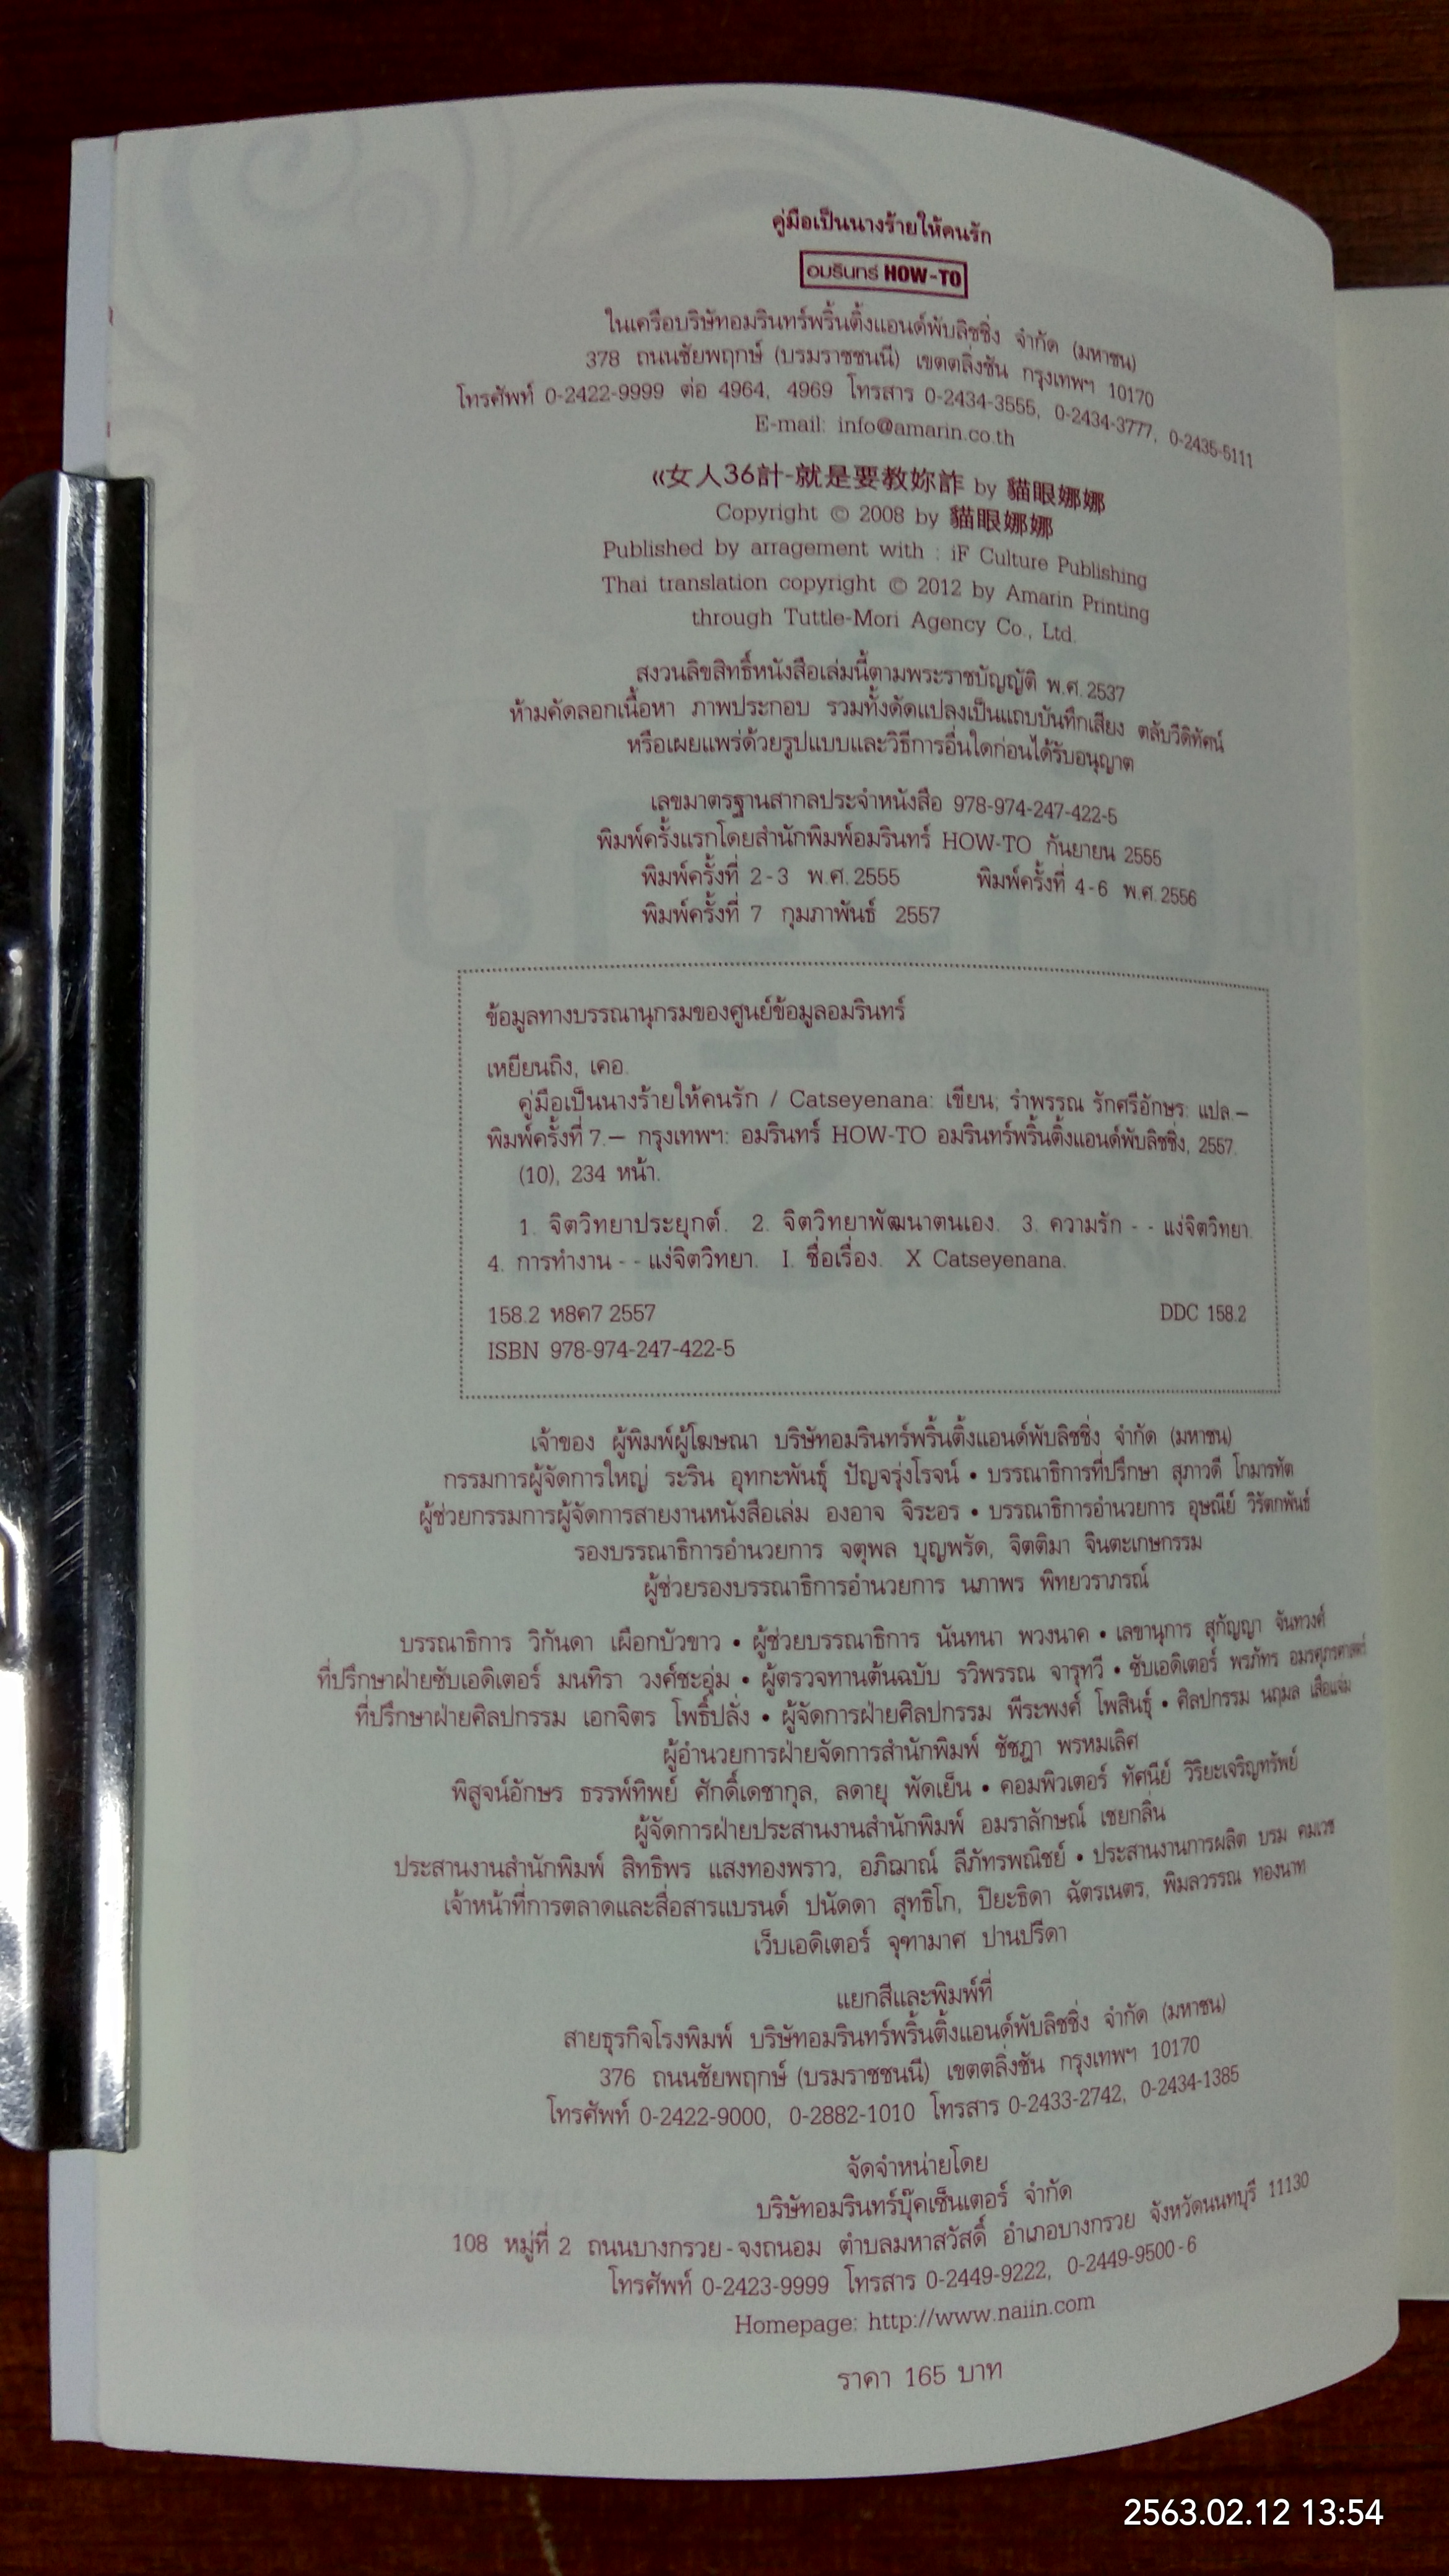 คู่มือเป็นนางร้ายให้คนรัก
อมรินทร์ HOW-TO
ในเครือบริษัทอมรินทร์พริ้นติ้งแอนด์พับลิชชิ่ง จำกัด (มหาชน)
378 ถนนชัยพฤกษ์ (บรมราชชนนี) เขตตลิ่งชัน กรุงเทพฯ 10170
โทรศัพท์ 0-2422-9999 ต่อ 4964, 4969 โทรสาร 0-2434-3555, 0-2434-3777, 0-2435-5111
E-mail: info@amarin.co.th
《女人36計-就是要教妳詐 by 貓眼娜娜
Copyright © 2008 by 貓眼娜娜
Published by arragement with : iF Culture Publishing
Thai translation copyright © 2012 by Amarin Printing
through Tuttle-Mori Agency Co., Ltd.
สงวนลิขสิทธิ์หนังสือเล่มนี้ตามพระราชบัญญัติ พ.ศ. 2537
ห้ามคัดลอกเนื้อหา ภาพประกอบ รวมทั้งดัดแปลงเป็นแถบบันทึกเสียง ตลับวีดิทัศน์
หรือเผยแพร่ด้วยรูปแบบและวิธีการอื่นใดก่อนได้รับอนุญาต
เลขมาตรฐานสากลประจำหนังสือ 978-974-247-422-5
พิมพ์ครั้งแรกโดยสำนักพิมพ์อมรินทร์ HOW-TO กันยายน 2555
พิมพ์ครั้งที่ 2-3 พ.ศ. 2555 พิมพ์ครั้งที่ 4-6 พ.ศ. 2556
พิมพ์ครั้งที่ 7 กุมภาพันธ์ 2557
ข้อมูลทางบรรณานุกรมของศูนย์ข้อมูลอมรินทร์
เหยียนถิง, เคอ.
คู่มือเป็นนางร้ายให้คนรัก / Catseyenana: เขียน; รำพรรณ รักศรีอักษร: แปล.—
พิมพ์ครั้งที่ 7.— กรุงเทพฯ: อมรินทร์ HOW-TO อมรินทร์พริ้นติ้งแอนด์พับลิชชิ่ง, 2557.
(10), 234 หน้า.
1. จิตวิทยาประยุกต์. 2. จิตวิทยาพัฒนาตนเอง. 3. ความรัก - - แง่จิตวิทยา.
4. การทำงาน - - แง่จิตวิทยา. I. ชื่อเรื่อง. X Catseyenana.
158.2 ห8ค7 2557 DDC 158.2
ISBN 978-974-247-422-5
เจ้าของ ผู้พิมพ์ผู้โฆษณา บริษัทอมรินทร์พริ้นติ้งแอนด์พับลิชชิ่ง จำกัด (มหาชน)
กรรมการผู้จัดการใหญ่ ระริน อุทกะพันธุ์ ปัญจรุ่งโรจน์ • บรรณาธิการที่ปรึกษา สุภาวดี โกมารทัต
ผู้ช่วยกรรมการผู้จัดการสายงานหนังสือเล่ม องอาจ จิระอร • บรรณาธิการอำนวยการ อุษณีย์ วิรัตกพันธ์
รองบรรณาธิการอำนวยการ จตุพล บุญพรัด, จิตติมา จินตะเกษกรรม
ผู้ช่วยรองบรรณาธิการอำนวยการ นภาพร พิทยวราภรณ์
บรรณาธิการ วิกันดา เผือกบัวขาว • ผู้ช่วยบรรณาธิการ นันทนา พวงนาค • เลขานุการ สุกัญญา จันทวงศ์
ที่ปรึกษาฝ่ายซับเอดิเตอร์ มนทิรา วงศ์ชะอุ่ม • ผู้ตรวจทานต้นฉบับ รวิพรรณ จารุทวี • ซับเอดิเตอร์ พรภัทร อมรศุภรศาสตร์
ที่ปรึกษาฝ่ายศิลปกรรม เอกจิตร โพธิ์ปลั่ง • ผู้จัดการฝ่ายศิลปกรรม พีระพงศ์ โพสินธุ์ • ศิลปกรรม นฤมล เสือแจ่ม
ผู้อำนวยการฝ่ายจัดการสำนักพิมพ์ ชัชฎา พรหมเลิศ
พิสูจน์อักษร ธรรพ์ทิพย์ ศักดิ์เดชากุล, ลดายุ พัดเย็น • คอมพิวเตอร์ ทัศนีย์ วิริยะเจริญทรัพย์
ผู้จัดการฝ่ายประสานงานสำนักพิมพ์ อมราลักษณ์ เชยกลิ่น
ประสานงานสำนักพิมพ์ สิทธิพร แสงทองพราว, อภิฌาณ์ ลีภัทรพณิชย์ • ประสานงานการผลิต บรม คมเวช
เจ้าหน้าที่การตลาดและสื่อสารแบรนด์ ปนัดดา สุทธิโก, ปิยะธิดา ฉัตรเนตร, พิมลวรรณ ทองนาท
เว็บเอดิเตอร์ จุฑามาศ ปานปรีดา
แยกสีและพิมพ์ที่
สายธุรกิจโรงพิมพ์ บริษัทอมรินทร์พริ้นติ้งแอนด์พับลิชชิ่ง จำกัด (มหาชน)
376 ถนนชัยพฤกษ์ (บรมราชชนนี) เขตตลิ่งชัน กรุงเทพฯ 10170
โทรศัพท์ 0-2422-9000, 0-2882-1010 โทรสาร 0-2433-2742, 0-2434-1385
จัดจำหน่ายโดย
บริษัทอมรินทร์บุ๊คเซ็นเตอร์ จำกัด
108 หมู่ที่ 2 ถนนบางกรวย-จงถนอม ตำบลมหาสวัสดิ์ อำเภอบางกรวย จังหวัดนนทบุรี 11130
โทรศัพท์ 0-2423-9999 โทรสาร 0-2449-9222, 0-2449-9500-6
Homepage: http://www.naiin.com
ราคา 165 บาท
2563.02.12 13:54